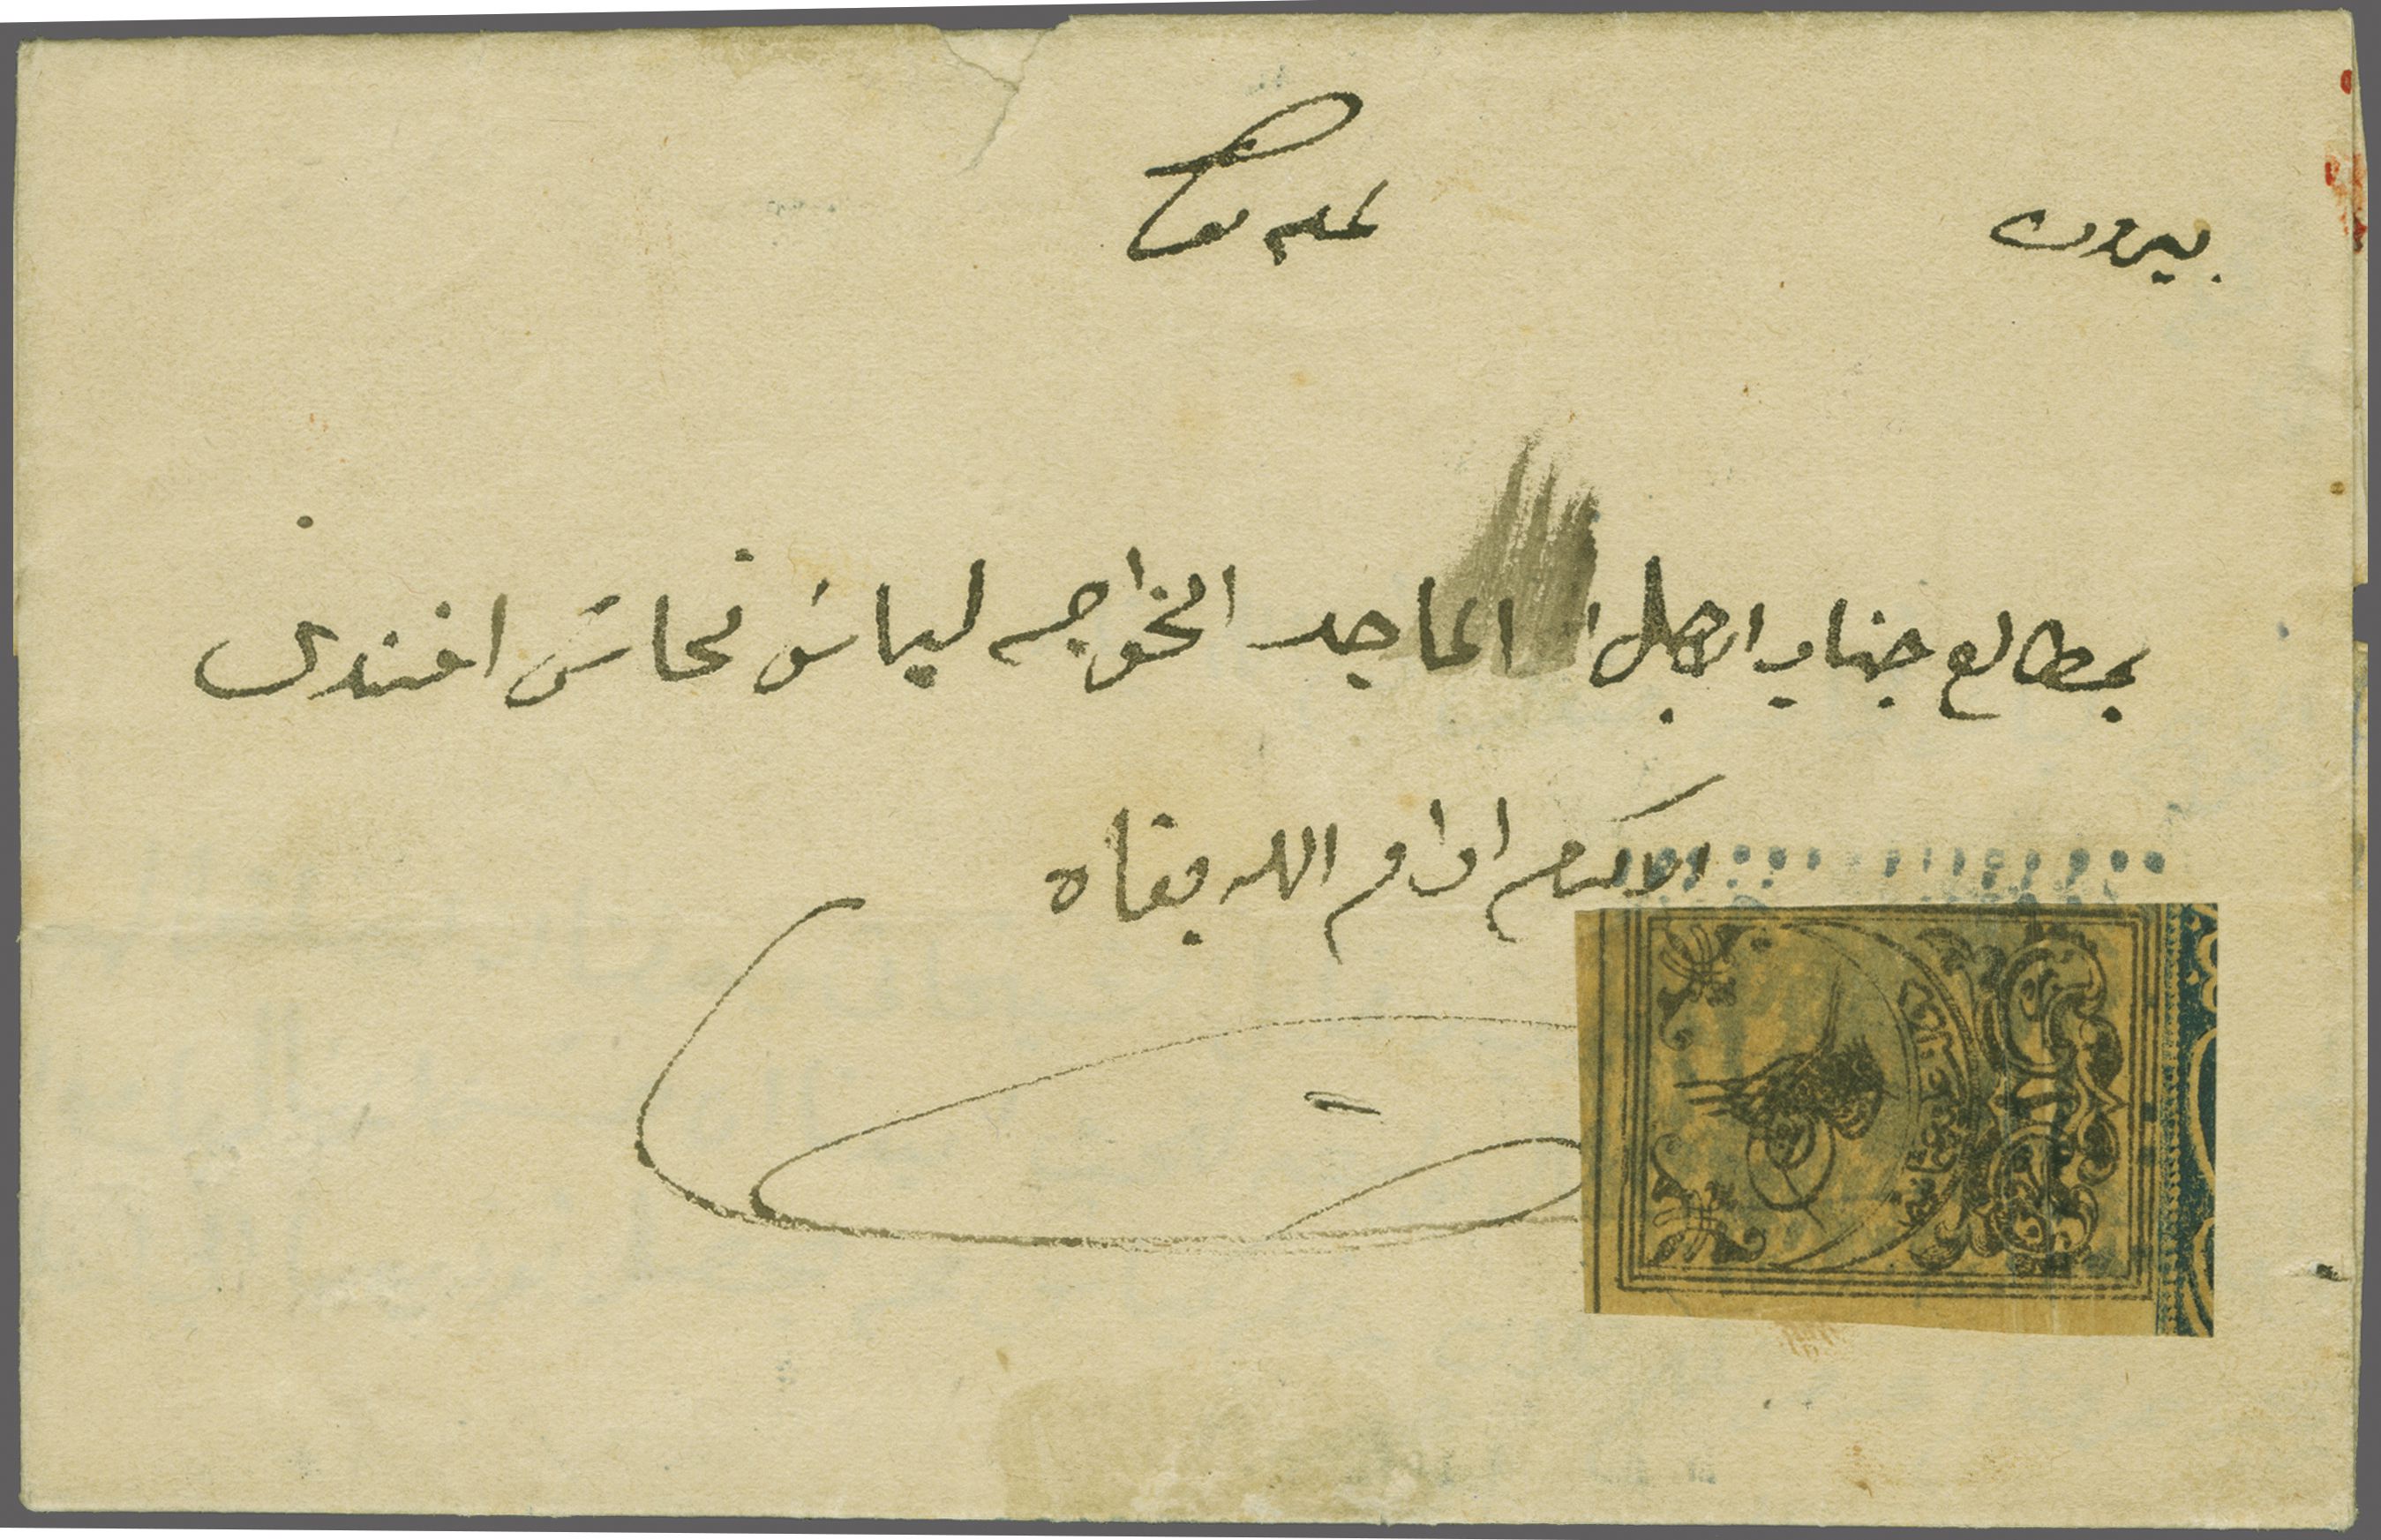 بيروت
بمطالع جناب الاجل الماجد الخواجه لياس نحاس افندي
الاكرم ادام الله بقاه